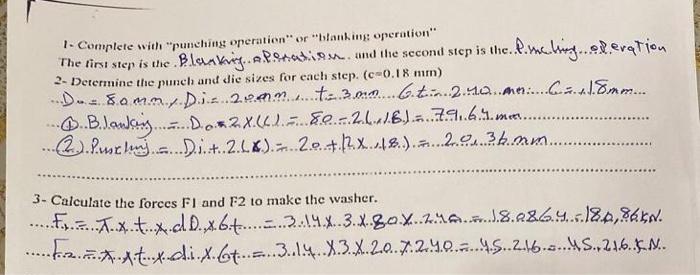 1- Complete with "punching operation" or "blanking operation"
The first step is the .Blanking..operation.. and the second step is the..Punching..operation
2- Determine the punch and die sizes for each step. (c=0.18 mm)
Do = 80mm, Di = 20mm, t=3mm 6t = 240 mm: C = ,18mm
① Blanking = Do - 2x(c) = 80 - 2(,18) = 79,64 mm
(2) Punching = Di + 2(x) = 20 + (2x,18) = 20,36mm
3- Calculate the forces F1 and F2 to make the washer.
F1 = π x t x dD x 6t = 3.14 x 3 x 80 x 240 = 180864 = 180,86kN.
F2 = π x t x di x 6t = 3.14 x 3 x 20 x 240 = 45216 = 45,216 kN.